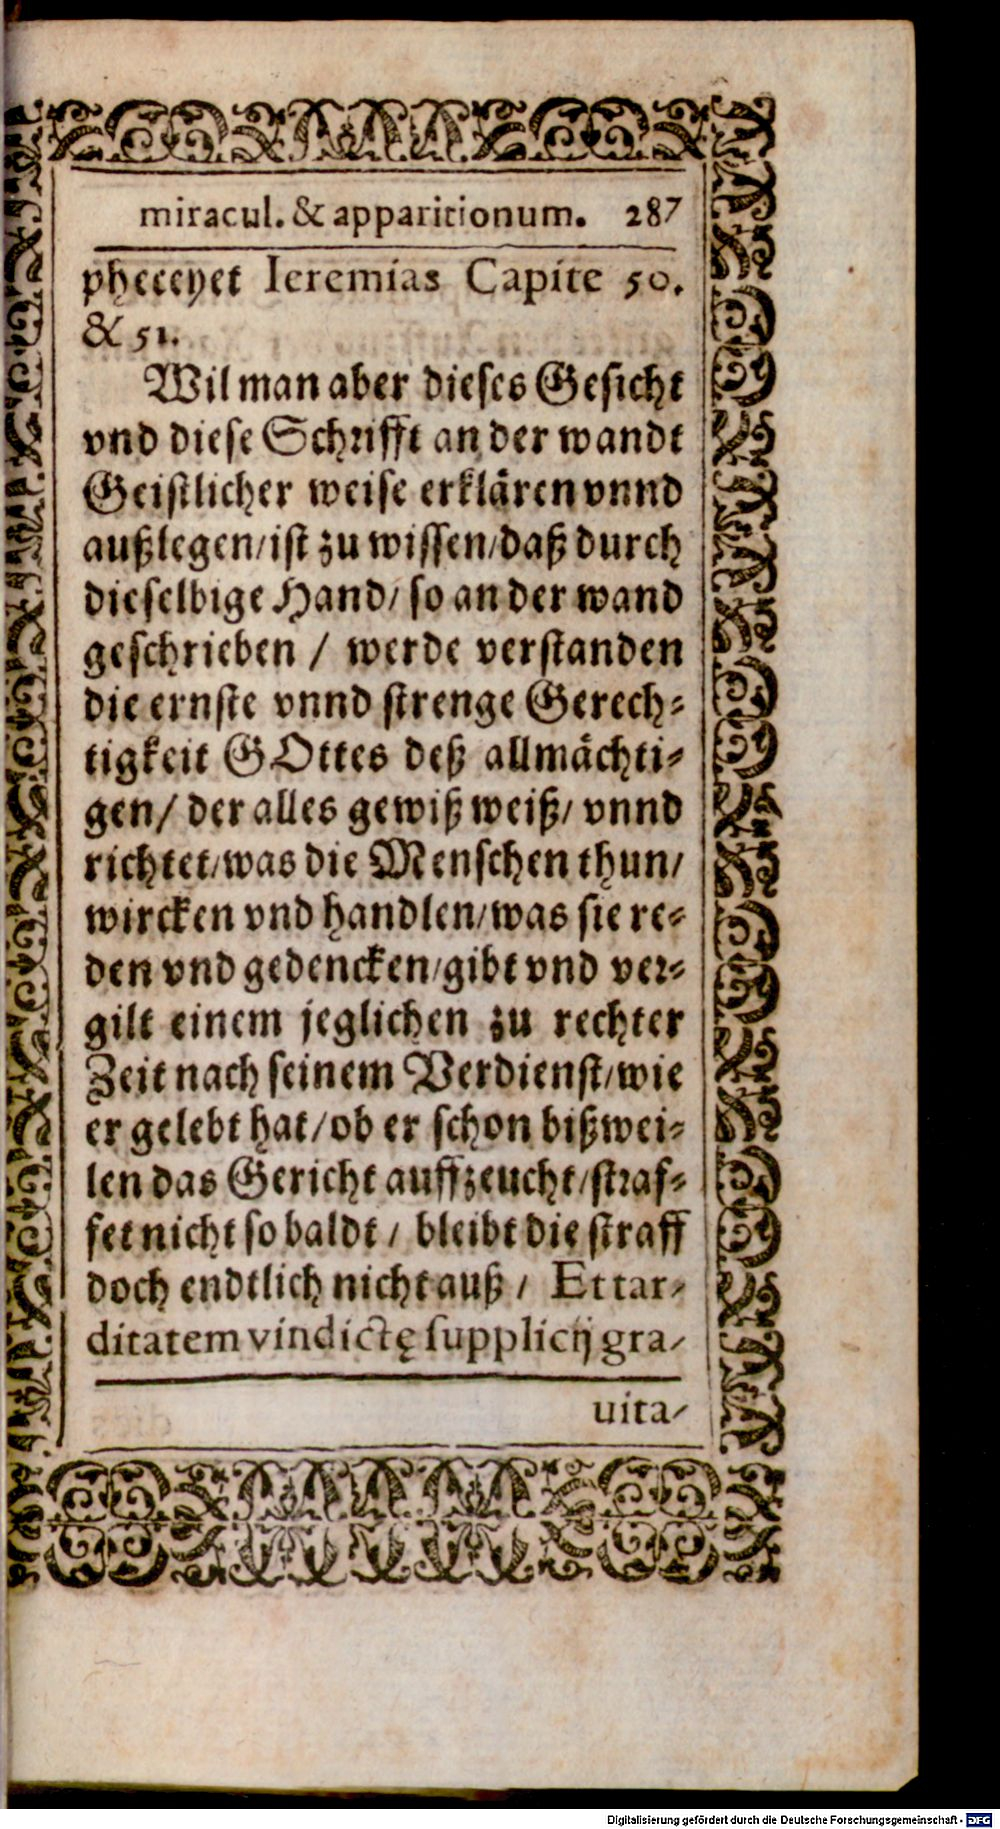 miracul. & apparitionum. 287
pheceyet Ieremias Capite 50.
& 51.
Wil man aber dieses Gesicht
vnd diese Schrifft an der wandt
Geistlicher weise erklären vnnd
außlegen/ist zu wissen/daß durch
dieselbige Hand/ so an der wand
geschrieben / werde verstanden
die ernste vnnd strenge Gerech-
tigkeit GOttes deß allmächti-
gen/ der alles gewiß weiß/ vnnd
richtet/was die Menschen thun/
wircken vnd handlen/was sie re-
den vnd gedencken/gibt vnd ver-
gilt einem jeglichen zu rechter
Zeit nach seinem Verdienst/wie
er gelebt hat/ob er schon bißwei-
len das Gericht auffzeucht/straf-
fet nicht so baldt / bleibt die straff
doch endtlich nicht auß / Et tar-
ditatem vindictę supplicij gra-
uita-
Digitalisierung gefördert durch die Deutsche Forschungsgemeinschaft - DFG